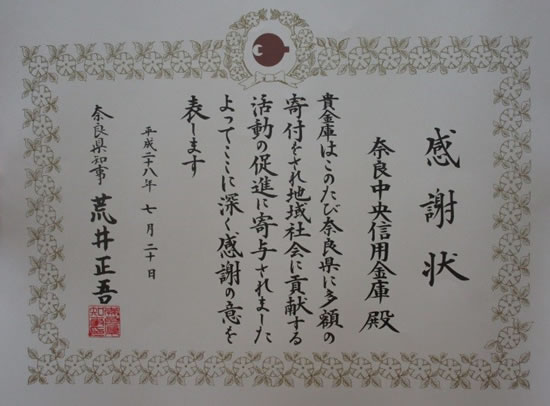 感謝状
奈良中央信用金庫 殿
貴金庫はこのたび奈良県に多額の
寄付をされ地域社会に貢献する
活動の促進に寄与されました
よってここに深く感謝の意を
表します
平成二十八年 七月二十日
奈良県知事 荒井正吾